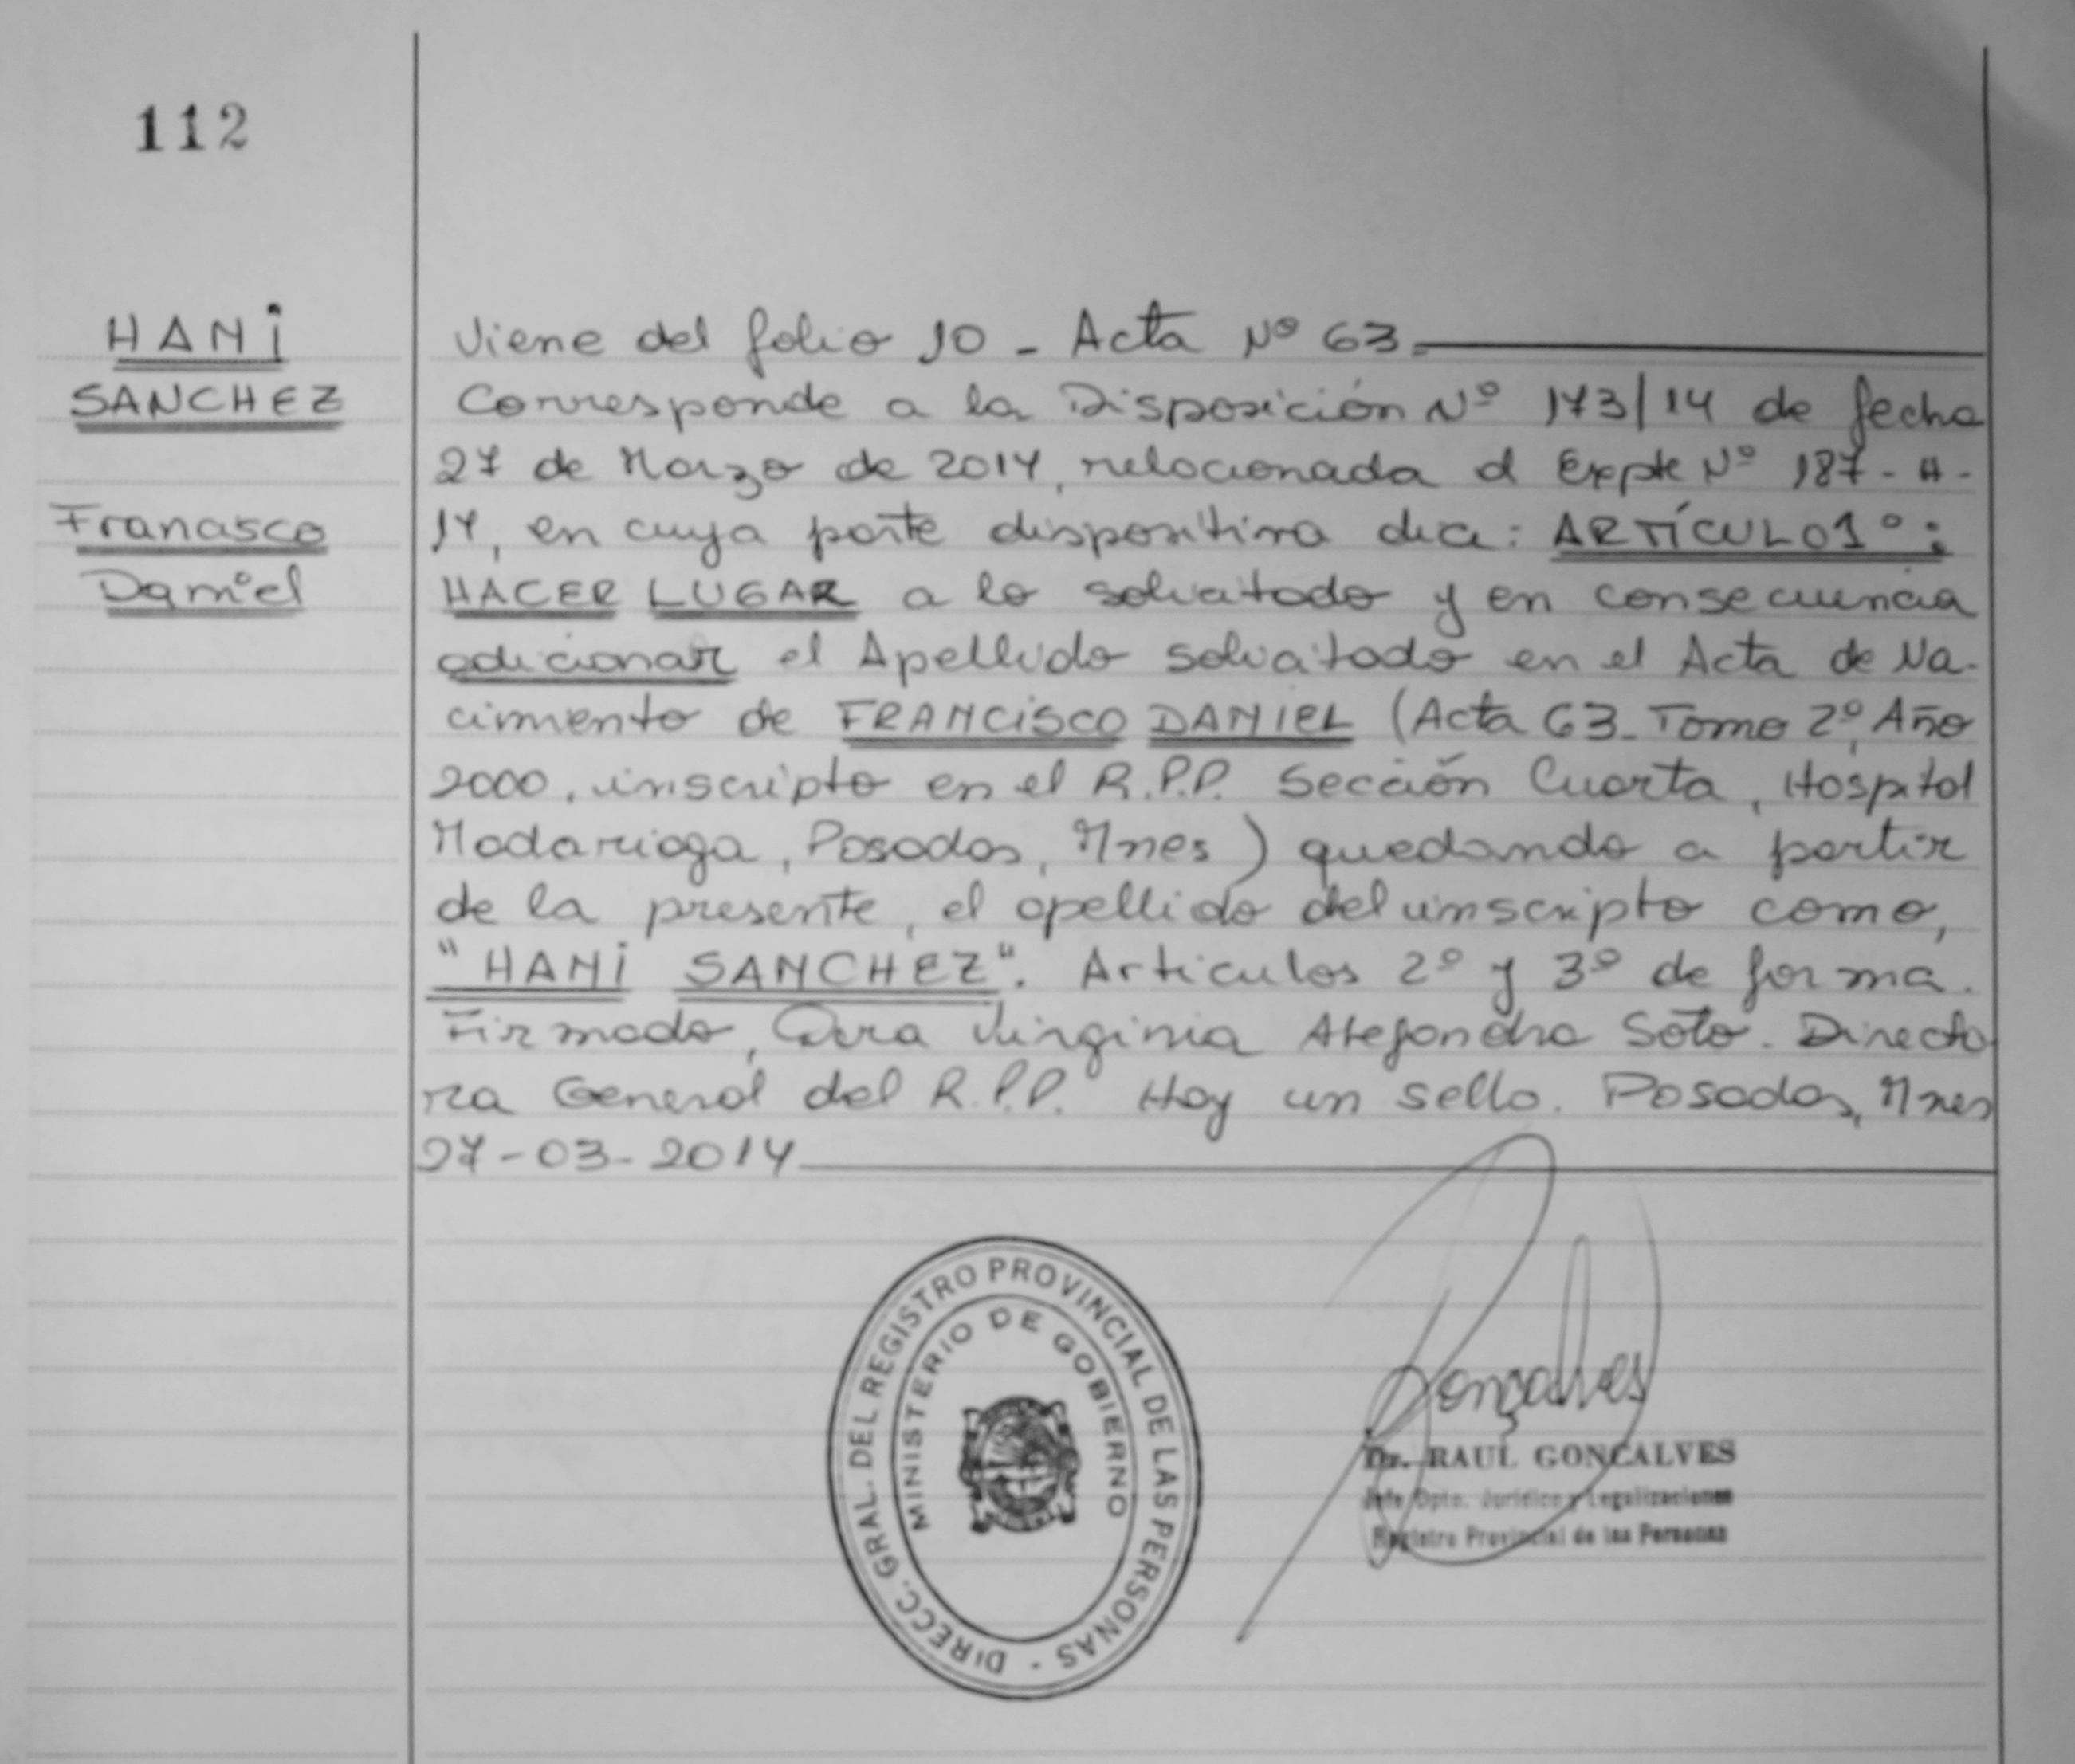 112
HANI
SANCHEZ
Francisco
Daniel
Viene del folio 10 - Acta Nº 63.
Corresponde a la Disposición Nº 173/14 de fecha
27 de Marzo de 2014, relacionada al Expte Nº 187-H-
14, en cuya parte dispositiva dice: ARTÍCULO 1º:
HACER LUGAR a lo solicitado y en consecuencia
adicionar el Apellido solicitado en el Acta de Na-
cimiento de FRANCISCO DANIEL (Acta 63_ Tomo 2º, Año
2000, inscripto en el R.P.P. Sección Cuarta, Hospital
Madariaga, Posadas, Mnes) quedando a partir
de la presente, el apellido del inscripto como,
"HANI SANCHEZ". Articulos 2º y 3º de forma.
Firmado, Dra Virginia Alejandra Soto. Directo
ra General del R.P.P. Hay un sello. Posadas, Mnes
27-03-2014
DIRECC. GRAL. DEL REGISTRO PROVINCIAL DE LAS PERSONAS -
MINISTERIO DE GOBIERNO
Gonçalves
Dr. RAUL GONÇALVES
Jefe Dpto. Jurídico y Legalizaciones
Registro Provincial de las Personas